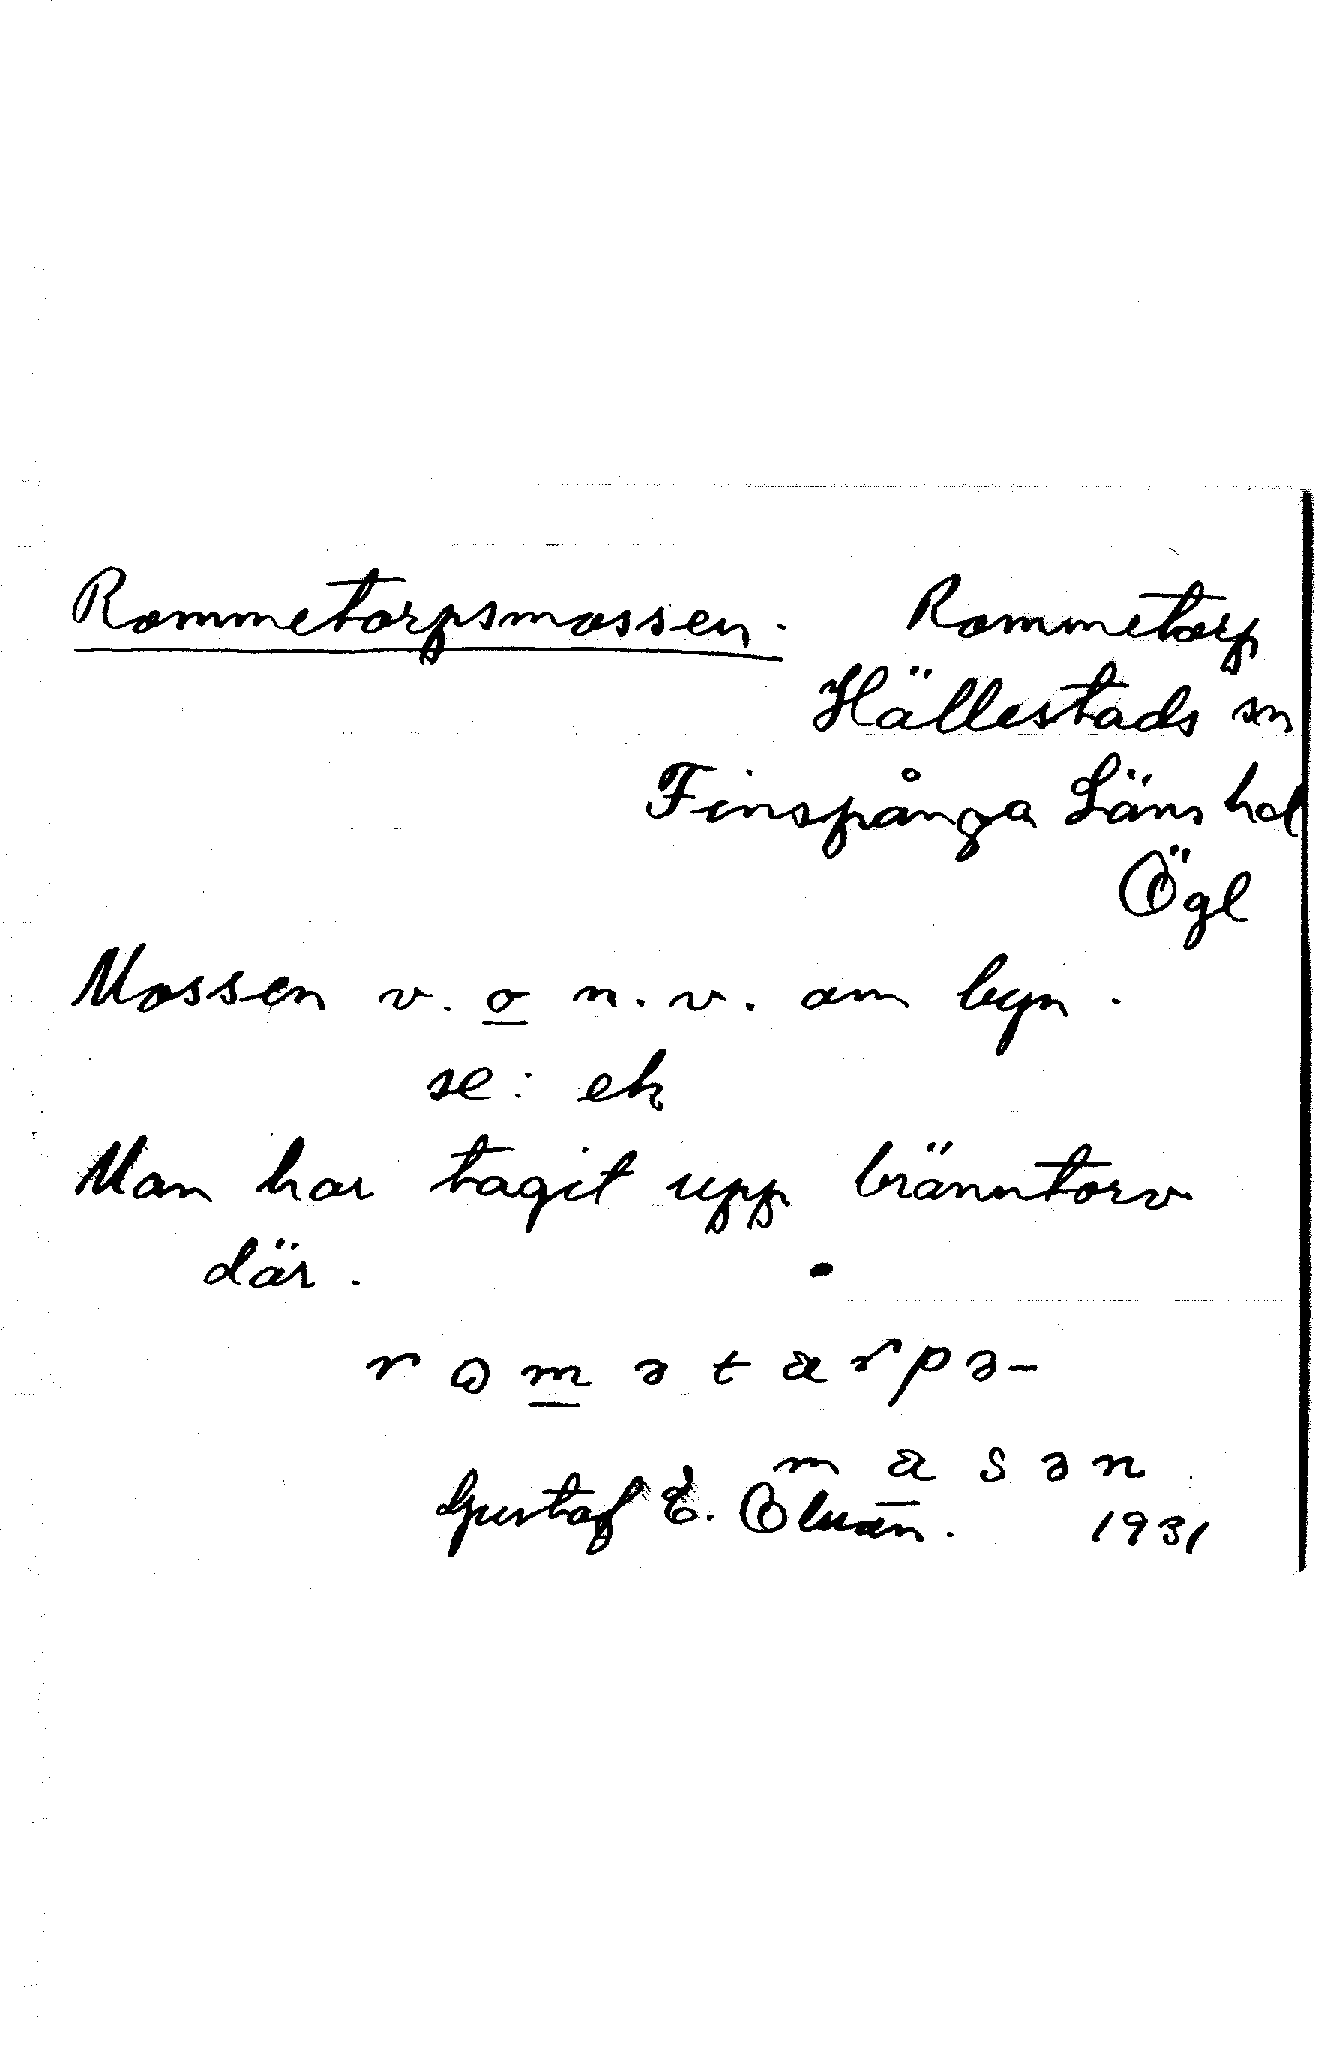 Rommetorpsmossen. Rommetorp
Hällestads sn
Finspånga Läns hd
Ögl
Mossen v. o n.v. om byn.
se: ek
Man har tagit upp bränntorv
där.
rωmətarpə-
masən
Gustaf E. 1931